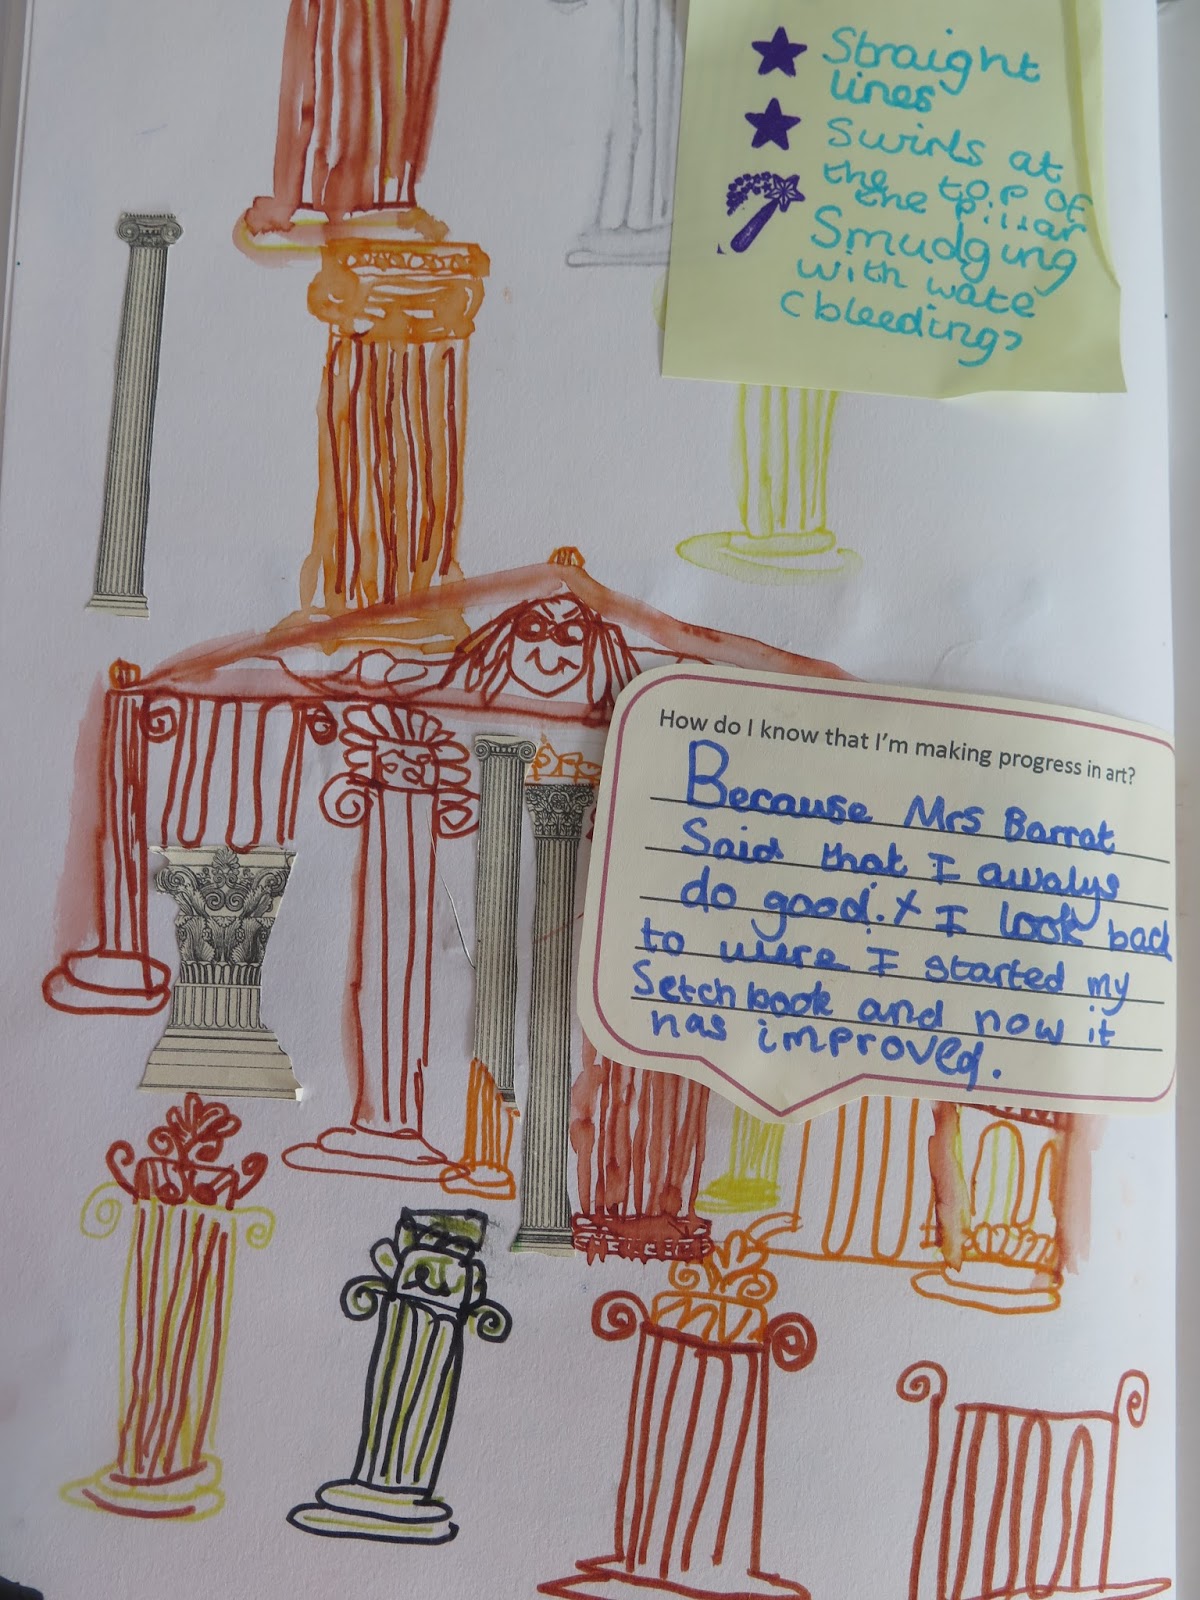 Straight
lines
Swirls at
the top of
the pillar
Smudging
with wate
(bleeding)
How do I know that I'm making progress in art?
Because Mrs Barrat
Said that I awalys
do good. + I look back
to were I started my
Setchbook and now it
has improved.